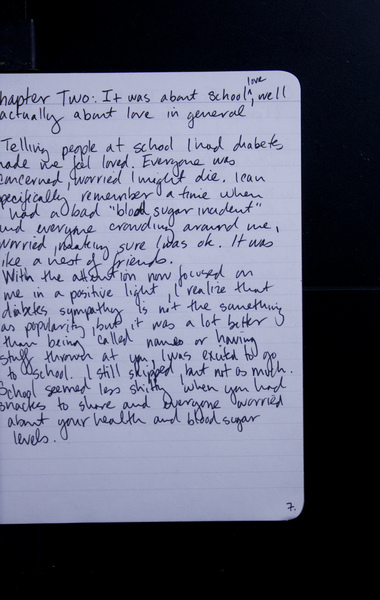 hapter Two: It was about school love, well
actually about love in general
Telling people at school I had diabetes
made me feel loved. Everyone was
concerned, worried I might die. I can
specifically remember a time when
I had a bad "blood sugar incident"
and everyone crowding around me,
worried, making sure I was ok. It was
like a nest of friends.
With the attention now focused on
me in a positive light, I realize that
diabetes sympathy is not the something
as popularity, but it was a lot better
than being called names or having
stuff thrown at you, I was excited to go
to school. I still skipped, but not as much.
School seemed less shitty when you had
snacks to share and everyone worried
about your health and blood sugar
levels.
7.